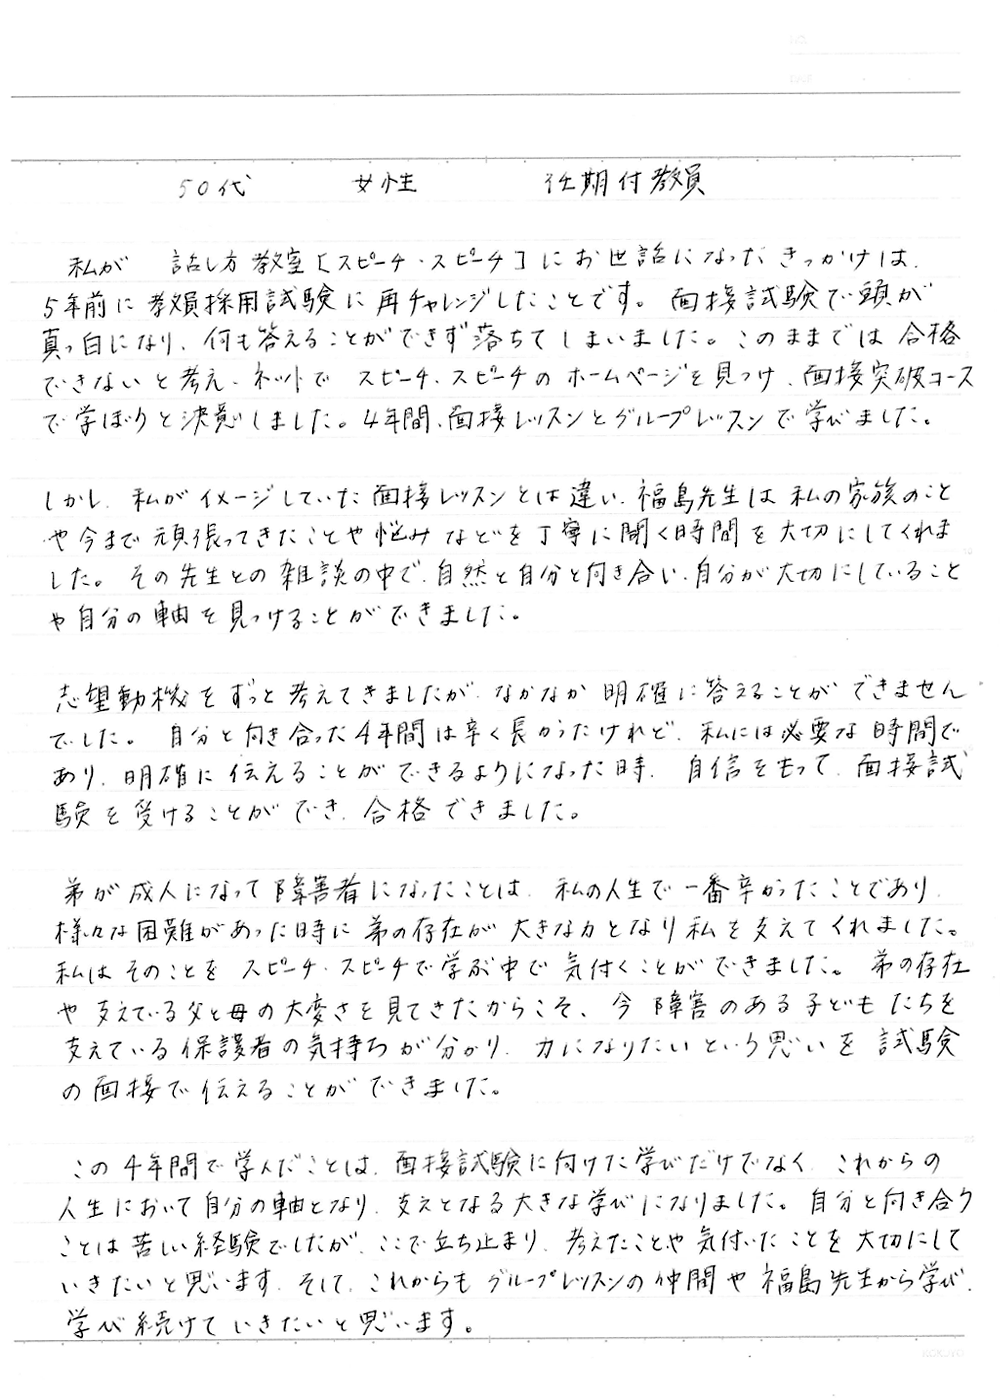 50代 女性 任期付教員
私が 話し方教室[スピーチ・スピーチ]にお世話になったきっかけは、
5年前に教員採用試験に再チャレンジしたことです。面接試験で頭が
真っ白になり、何も答えることができず落ちてしまいました。このままでは合格
できないと考え、ネットで スピーチ・スピーチのホームページを見つけ、面接突破コース
で学ぼうと決意しました。4年間、面接レッスンとグループレッスンで学びました。
しかし、私がイメージしていた面接レッスンとは違い、福島先生は私の家族のこと
や今まで頑張ってきたことや悩みなどを丁寧に聞く時間を大切にしてくれま
した。その先生との雑談の中で、自然と自分と向き合い、自分が大切にしていること
や自分の軸を見つけることができました。
志望動機をずっと考えてきましたが、なかなか明確に答えることができません
でした。自分と向き合った4年間は辛く長かったけれど、私には必要な時間で
あり、明確に伝えることができるようになった時、自信をもって、面接試
験を受けることができ、合格できました。
弟が成人になって障害者になったことは、私の人生で一番辛かったことであり、
様々な困難があった時に弟の存在が大きな力となり私を支えてくれました。
私はそのことを スピーチ・スピーチで学ぶ中で気付くことができました。弟の存在
や支えている父と母の大変さを見てきたからこそ、今障害のある子どもたちを
支えている保護者の気持ちが分かり、力になりたいという思いを試験
の面接で伝えることができました。
この4年間で学んだことは、面接試験に付けた学びだけでなく、これからの
人生において自分の軸となり、支えとなる大きな学びになりました。自分と向き合う
ことは苦しい経験でしたが、ここで立ち止まり、考えたことや気付いたことを大切にして
いきたいと思います。そして、これからもグループレッスンの仲間や福島先生から学び、
学び続けていきたいと思います。
KOKUYO